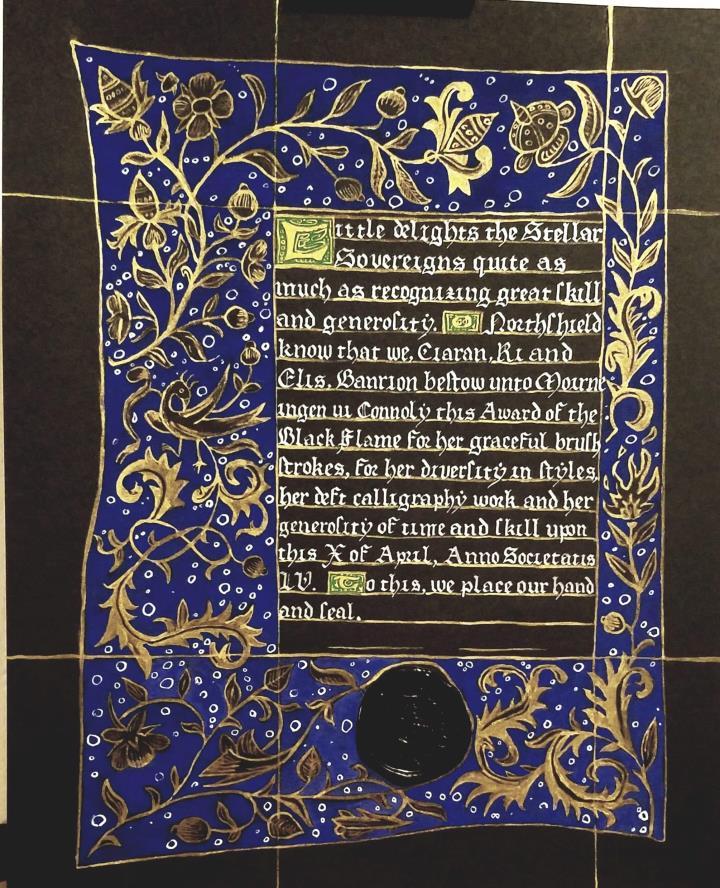 Little delights the Stellar
Sovereigns quite as
much as recognizing great ſkill
and generoſity. Northſhield
know that we, Ciaran, Ri and
Elis, Banrion beſtow unto Mourne
ingen ui Connoly this Award of the
Black Flame for her graceful bruſh
ſtrokes, for her diverſity in ſtyles,
her deft calligraphy work and her
generoſity of time and ſkill upon
this X of April, Anno Societatis
LV. To this, we place our hand
and ſeal.